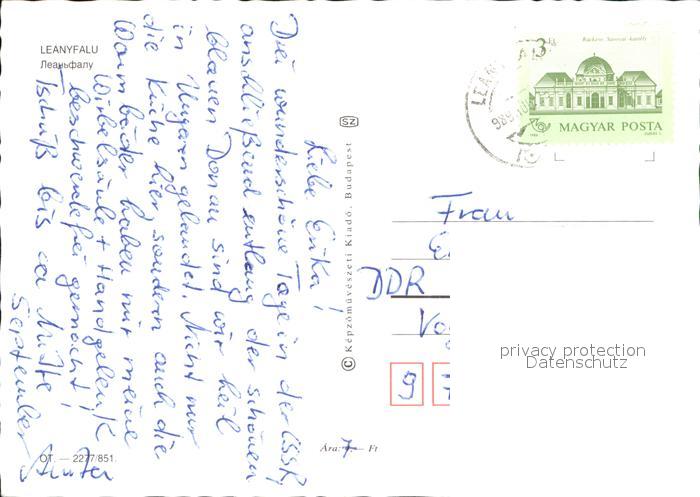 LEANYFALU
Леаньфалу
Liebe Erika!
Drei wunderschöne Tage in der CSSR,
anschließend entlang der schönen
blauen Donau sind wir heil
in Ungarn gelandet. Nicht nur
die Küche hier sondern auch die
Warmbäder haben mir meine
Wirbelsäule + Handgelenk
beschwerdefrei gemacht!
Tschüß bis ca Mitte
September
OT. — 2277/851.
© Képzőművészeti Kiadó, Budapest
SZ
Ára: 7.— Ft
3 Ft
Ráckeve, Savoyai-kastély
MAGYAR POSTA
LEÁNYFALU
Frau
DDR
9
privacy protection
Datenschutz